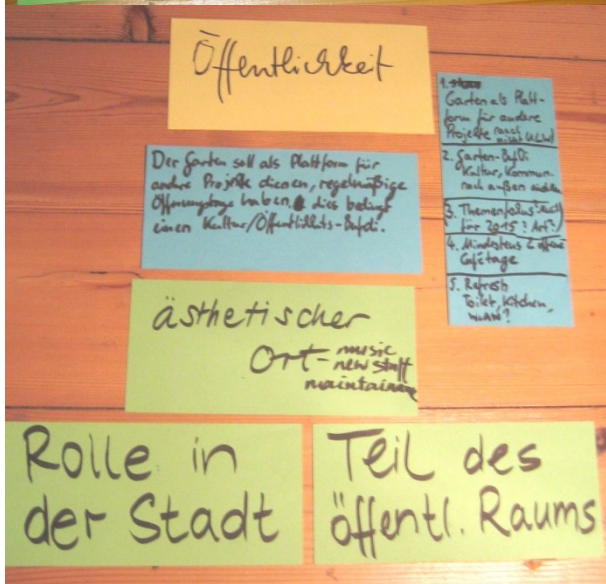 Öffentlichkeit
Der Garten soll als Plattform für
andere Projekte dienen, regelmäßige
Öffnungstage haben, dies bedingt
einen Kultur/Öffentlichkts-Bufdi.
1.
Garten als Platt-
form für andere
Projekte (auch
nicht
2. Garten-BufDi
Kultur, Kommun.
nach außen
3. Themenfokus
für 2015? Art?
4. Mindestens 2 offene
Cafétage
5. Refresh
Toilet, Kitchen,
WLAN?
ästhetischer
Ort - music
new stuff
maintain
Rolle in
der Stadt
Teil des
öffentl. Raums